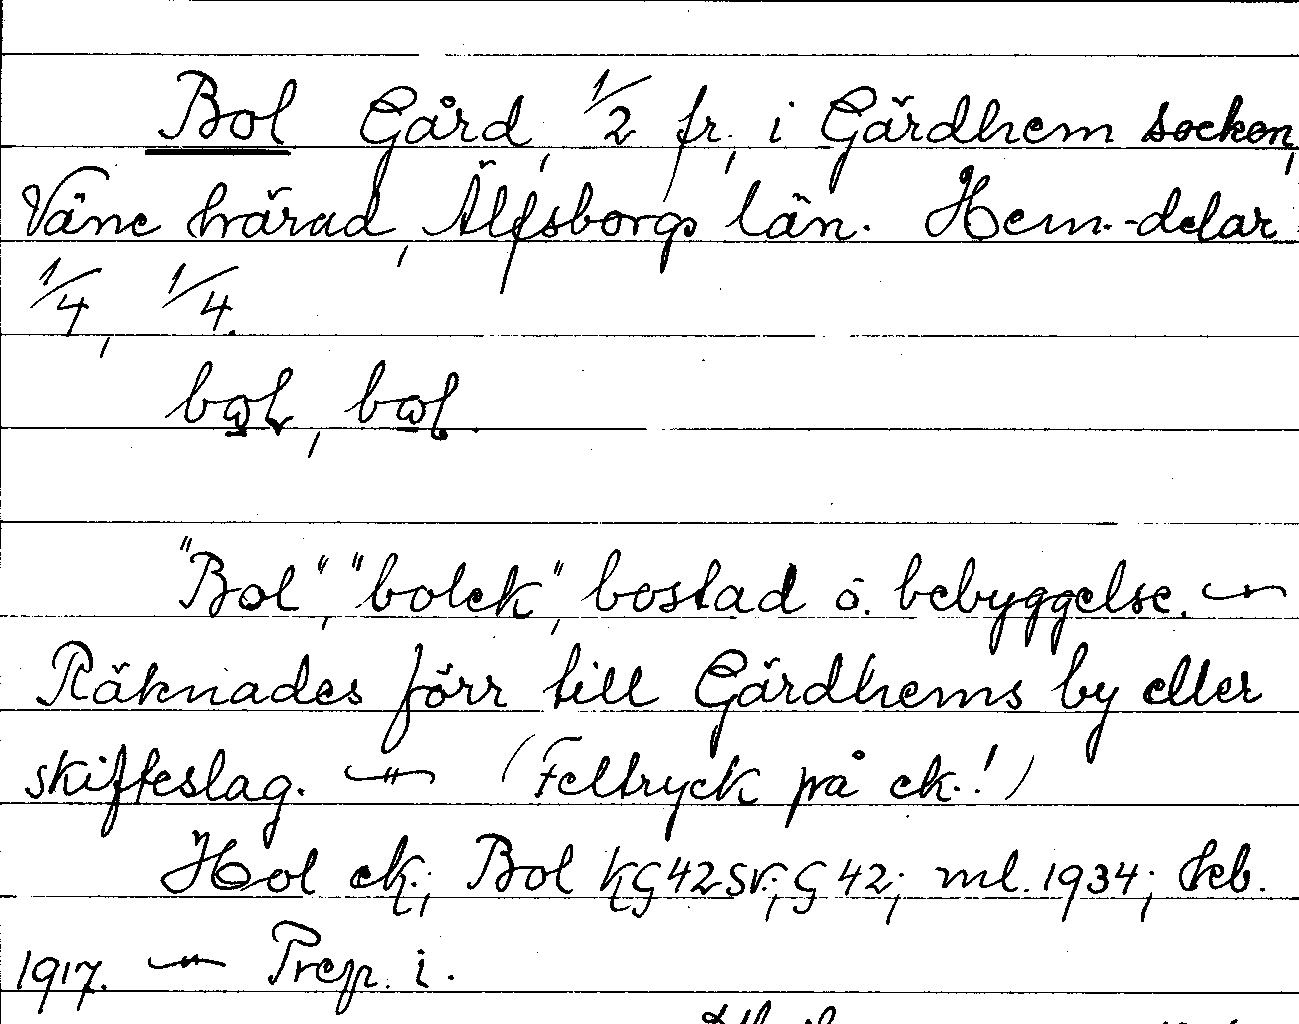 Bol Gård, 1/2 fr., i Gärdhem socken,
Väne härad, Älfsborgs län. Hem.-delar
1/4, 1/4.
bol, bol.
"Bol", "bolek", bostad o. bebyggelse. —
Räknades förr till Gärdhems by eller
skifteslag. — (Feltryck på ek.!)
Hol ek.; Bol KG 42 SV.; G 42; ml. 1934; Jeb.
1917. — Prep. i.